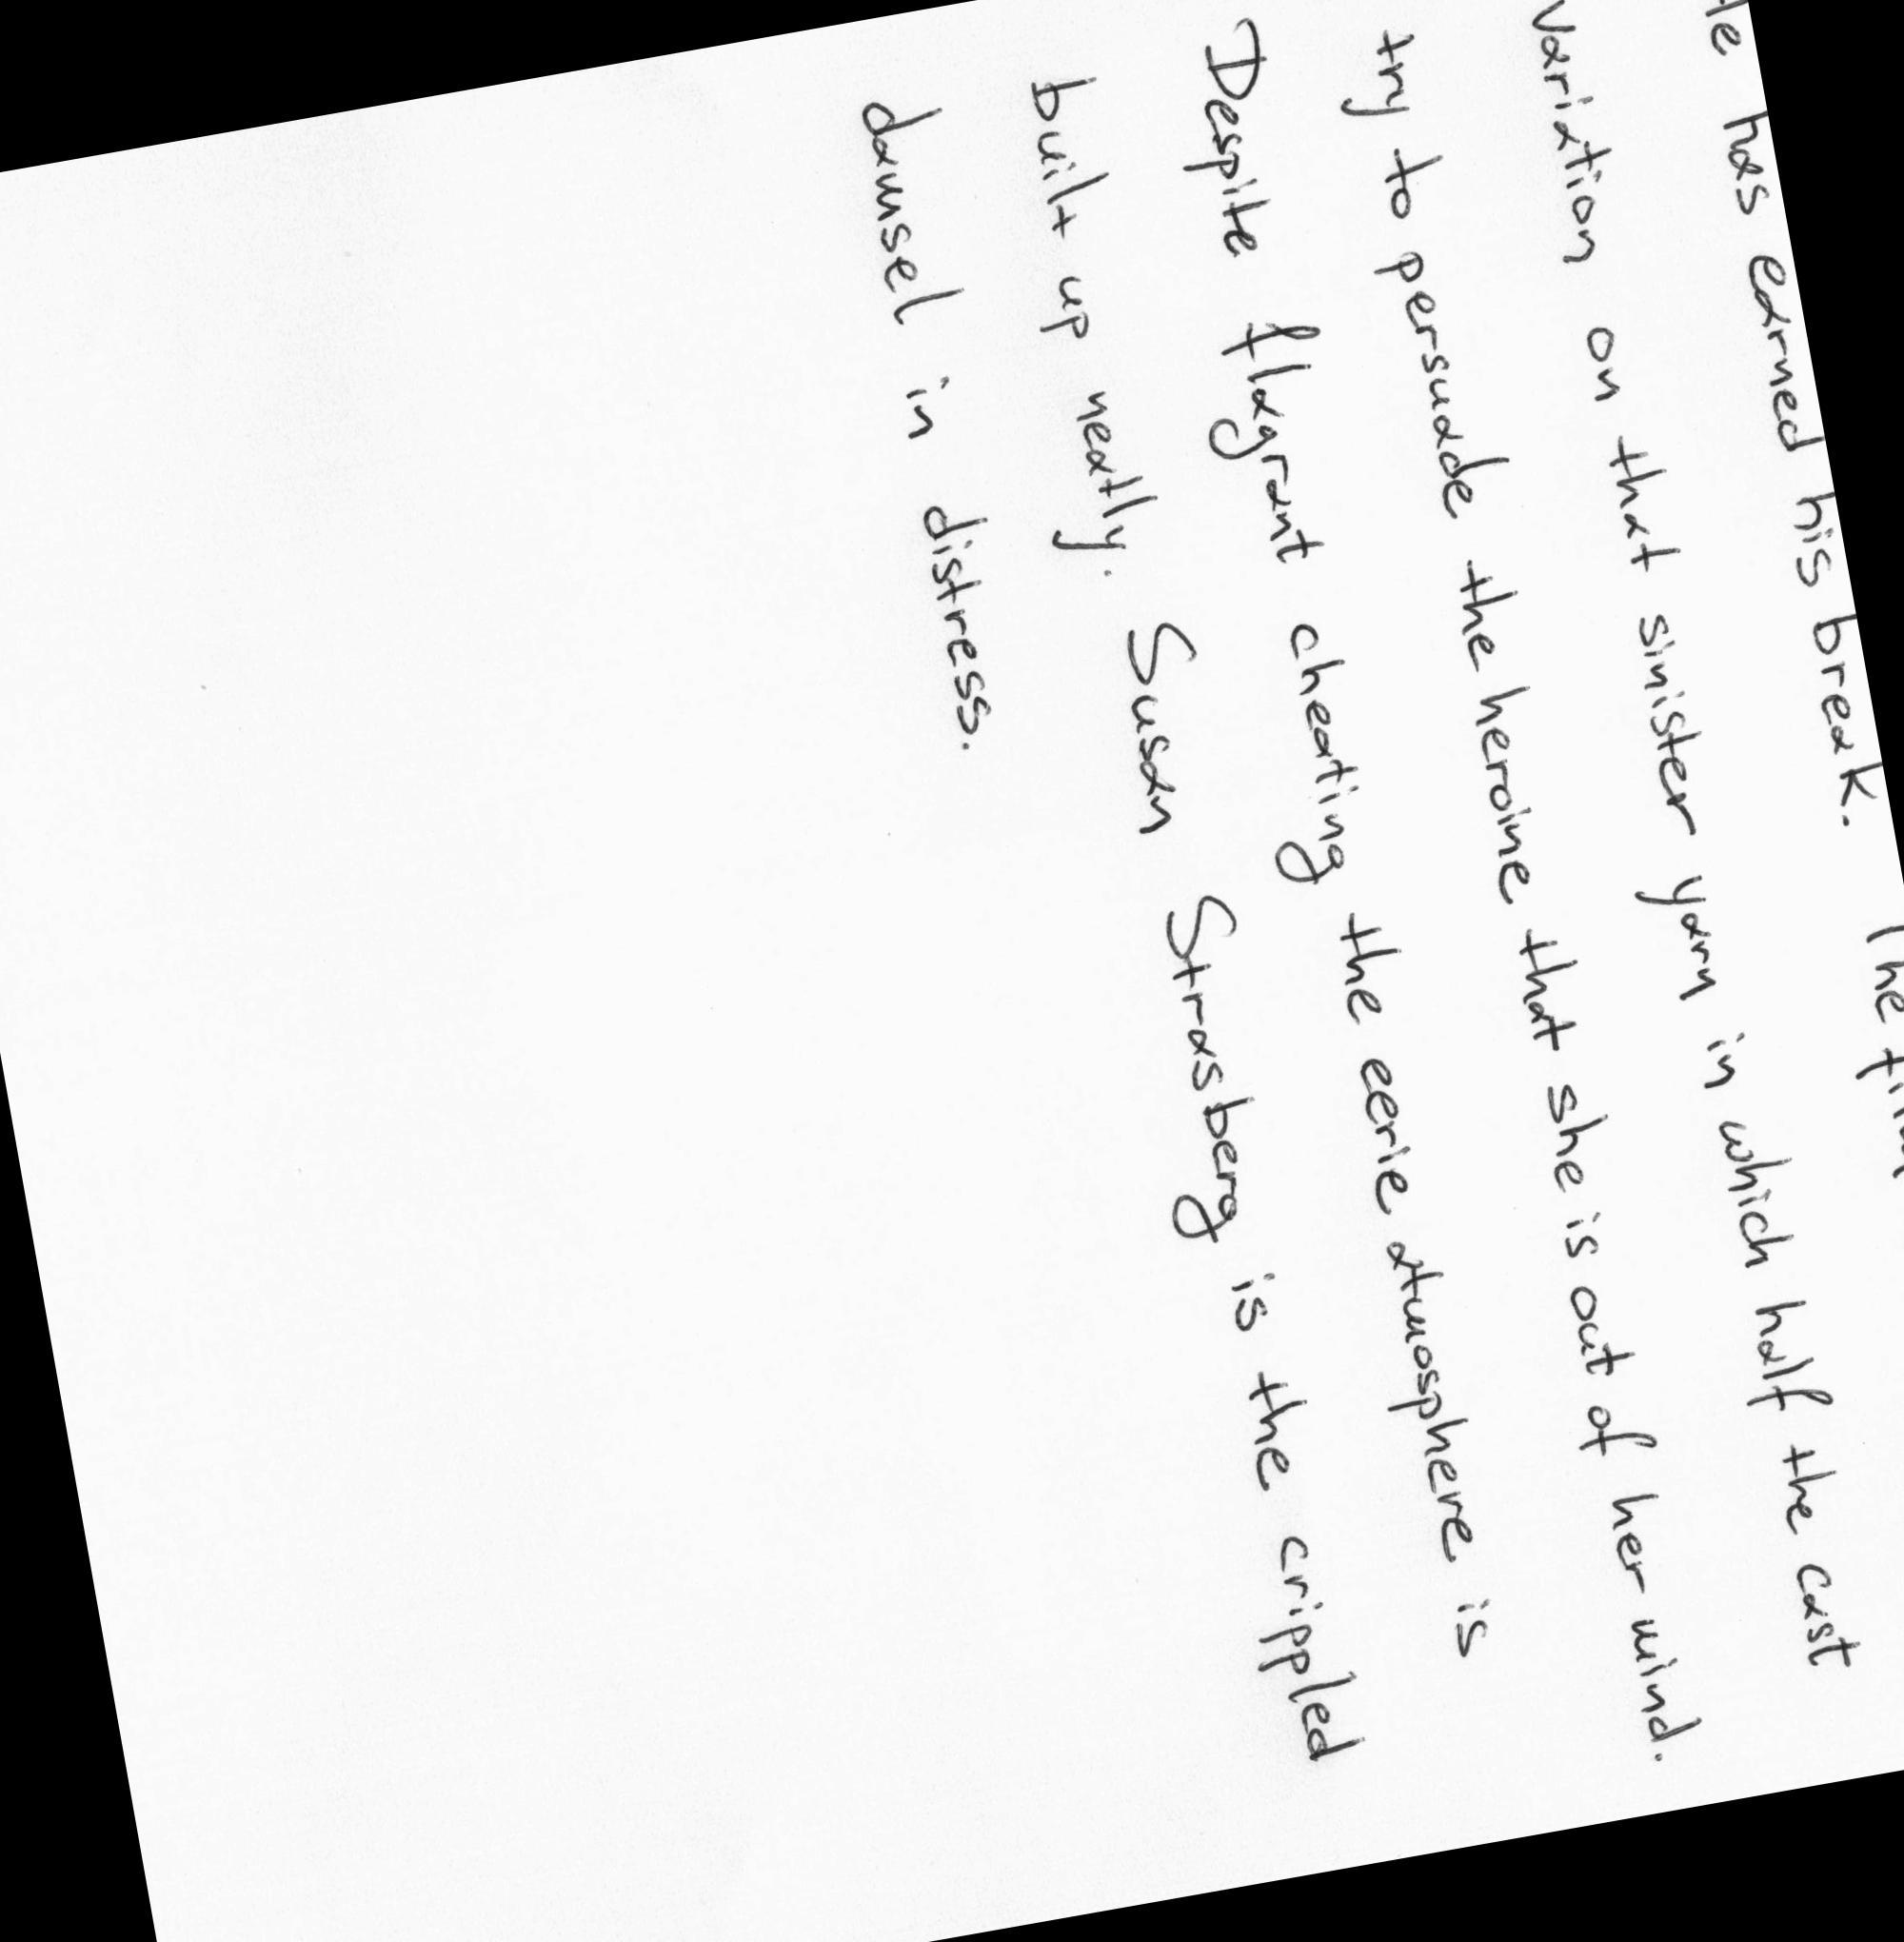 has earned his break. The
variation on that sinister yarn in which half the cast
try to persuade the heroine that she is out of her mind.
Despite flagrant cheating the eerie atmosphere is
built up neatly. Susan Strasberg is the crippled
damsel in distress.